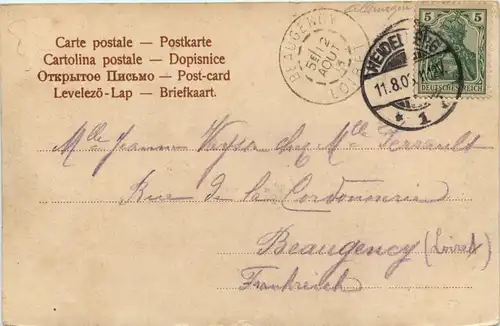 Allemagne
Carte postale — Postkarte
Cartolina postale — Dopisnice
Открытое Письмо — Post-card
Levelezō-Lap — Briefkaart.
BEAUGENCY
AOUT
LOIRET
HEIDELBERG
11.8.0
* 1
5 5
DEUTSCHES REICH
Mlle Jeanne chez Mlle Perrault
Rue de la Cordonnerie
Beaugency (Loiret)
Frankreich